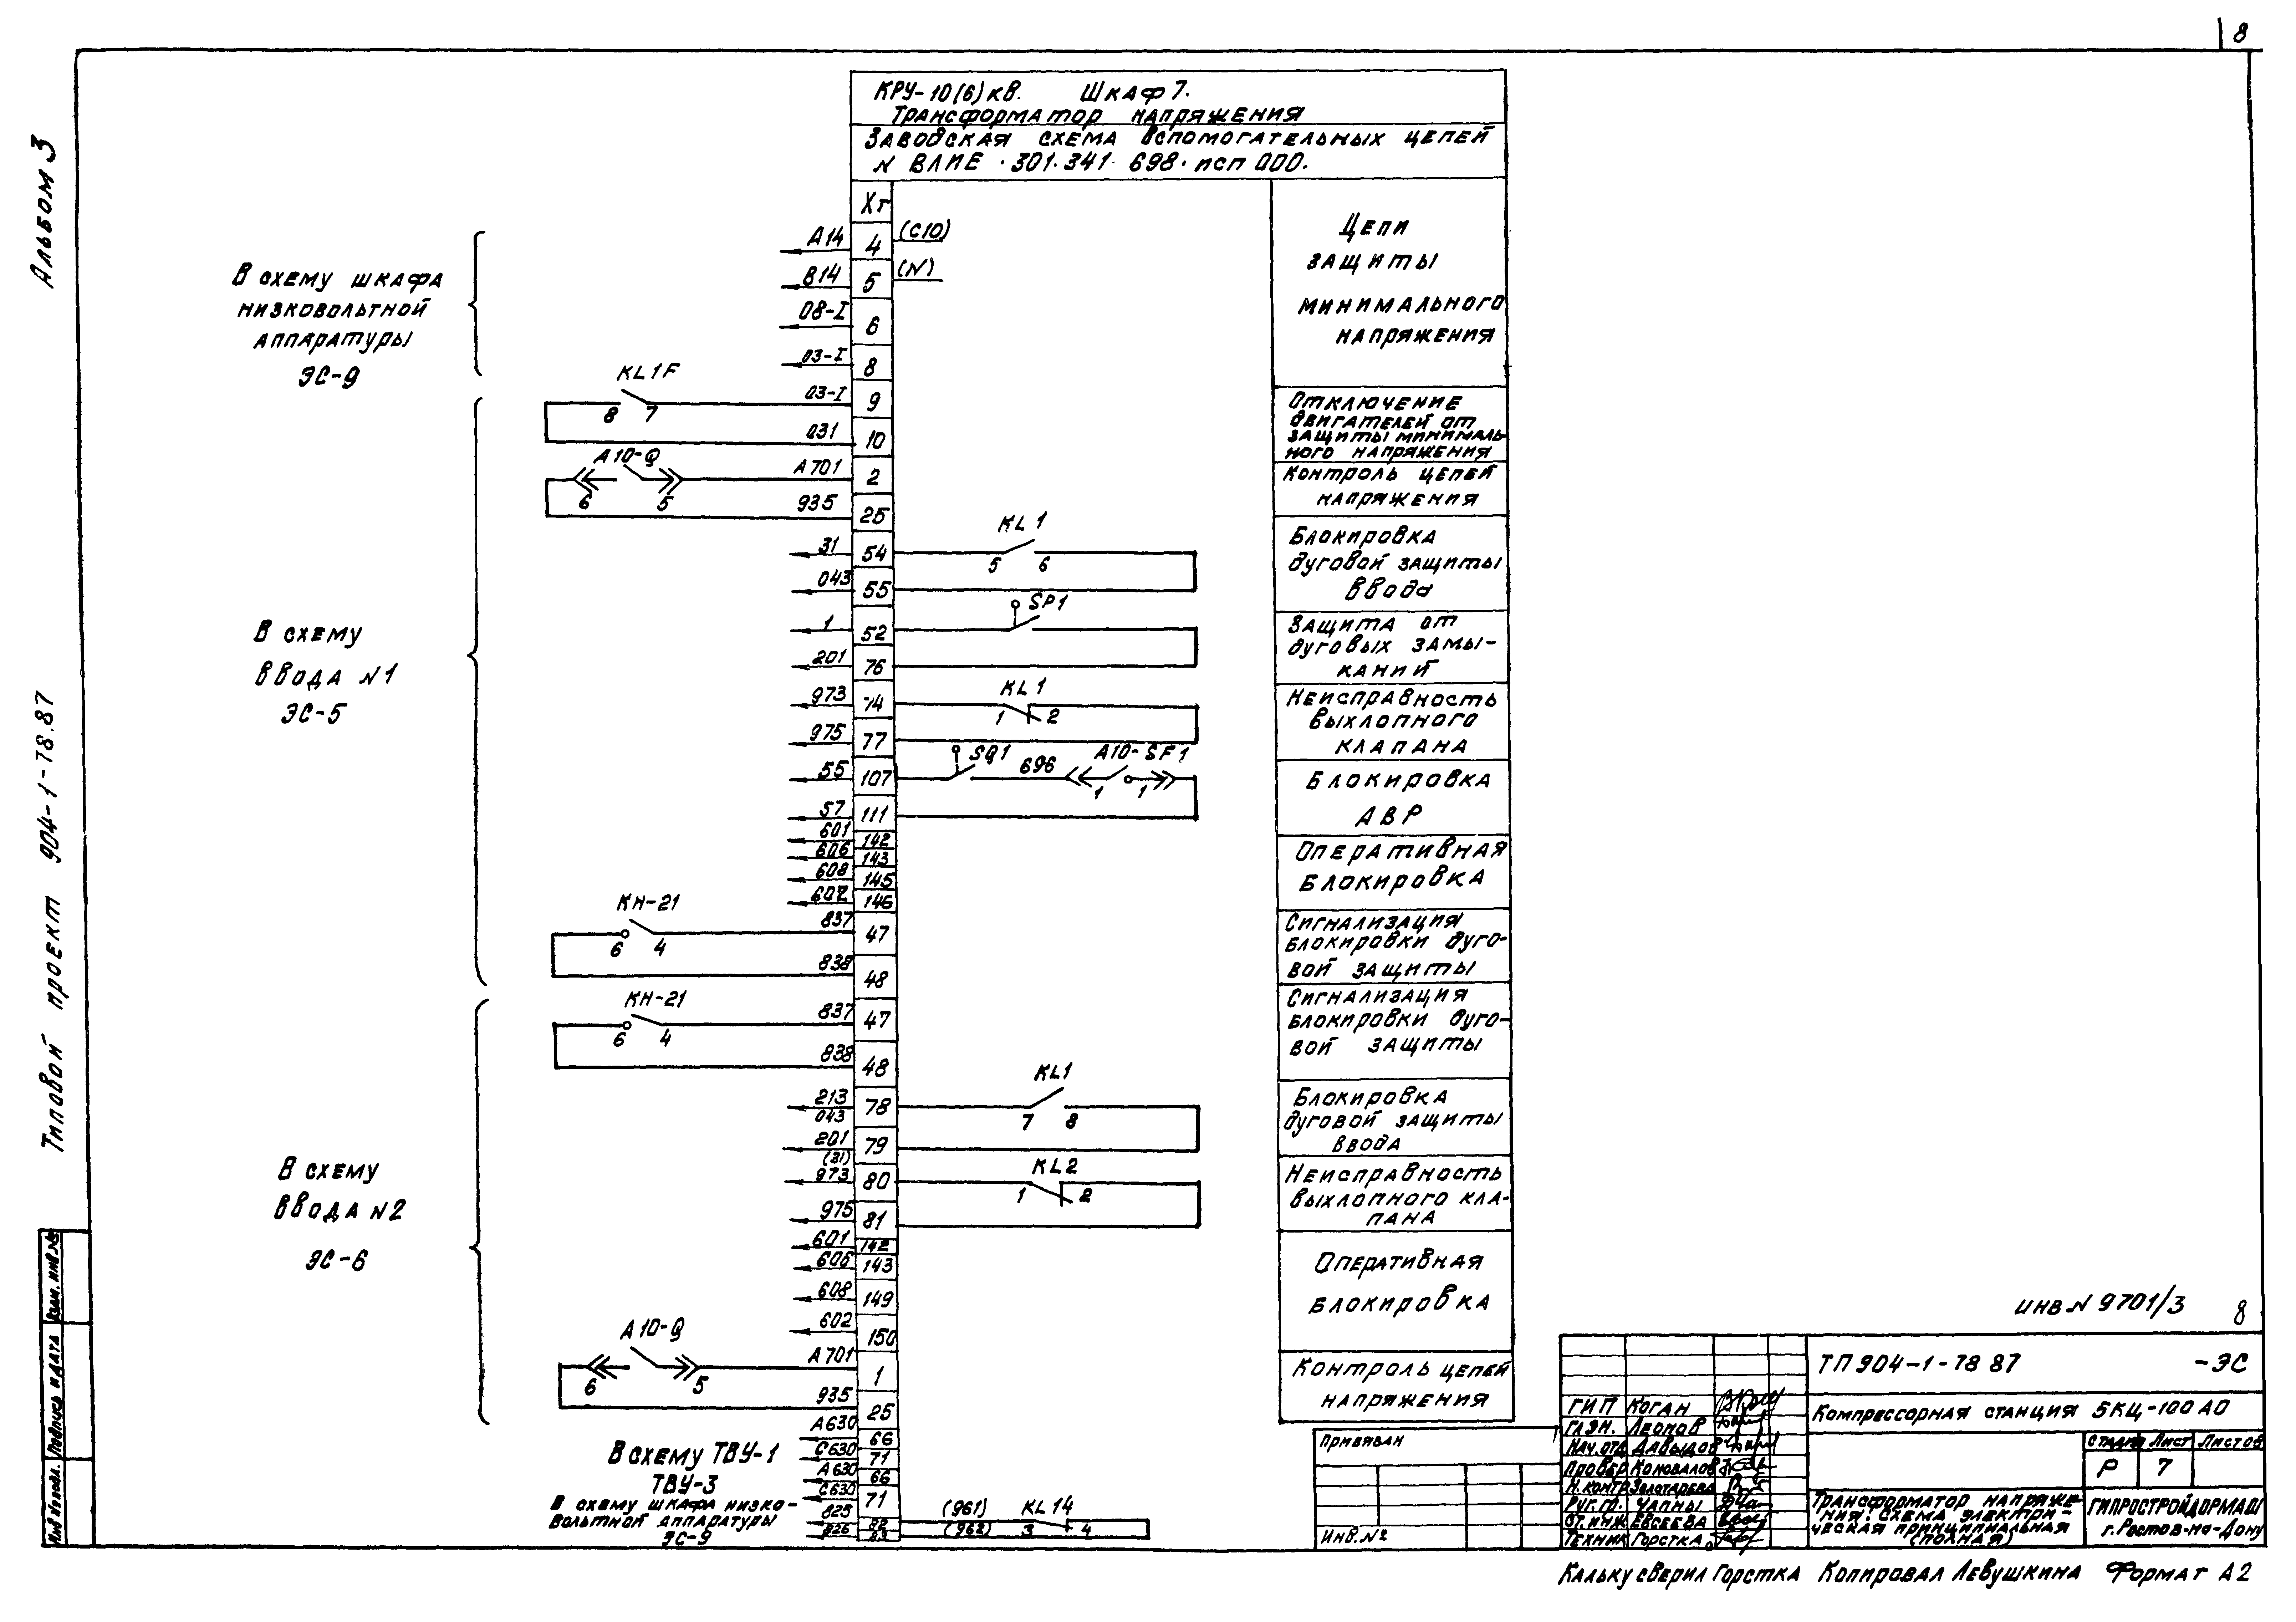 8
Альбом 3
Типовой проект 904-1-78.87
КРУ-10(6)кв. Шкаф 7.
Трансформатор напряжения
Заводская схема вспомогательных цепей
N ВЛИЕ.301.341.698.исп 000.
Хт
В схему шкафа
низковольтной
аппаратуры
ЭС-9
А14 4 (С10)
В14 5 (N)
08-I 6
03-I 8
Цепи
защиты
минимального
напряжения
KL1F
8 7
03-I 9
031 10
Отключение
двигателей от
защиты минималь-
ного напряжения
А10-Q
6 5
А701 2
935 25
Контроль цепей
напряжения
В схему
ввода N1
ЭС-5
31 54
KL1
5 6
043 55
Блокировка
дуговой защиты
ввода
1 52
SP1
201 76
Защита от
дуговых замы-
каний
973 74
KL1
1 2
975 77
Неисправность
выхлопного
клапана
55 107
SQ1 696 А10-SF1
1 1
57 111
Блокировка
АВР
601 142
606 143
608 145
602 146
Оперативная
блокировка
КН-21
6 4
837 47
838 48
Сигнализация
блокировки дуго-
вой защиты
КН-21
6 4
837 47
838 48
Сигнализация
блокировки дуго-
вой защиты
В схему
ввода N2
ЭС-6
213 78
043
KL1
7 8
201 79
(31)
Блокировка
дуговой защиты
ввода
973 80
KL2
1 2
975 81
Неисправность
выхлопного кла-
пана
601 142
606 143
608 149
602 150
Оперативная
блокировка
А10-Q
6 5
А701 1
935 25
Контроль цепей
напряжения
В схему ТВУ-1
ТВУ-3
А630 66
С630 71
А630 66
С630 71
В схему шкафа низко-
вольтной аппаратуры
ЭС-9
825 82
826 83
(961) KL14
(962) 3 4
инв N 9701/3 8
Привязан
Инв.N2
ТП 904-1-78 87 -ЭС
Компрессорная станция 5КЦ-100 АО
ГИП Коган
Гл.эн. Леонов
Нач.отд Давыдов
Провер Коновалов
Н.контр Золотарева
Рук.гр. Чапны
Ст.инж Евсеева
Техник Горстка
Стадия Лист Листов
Р 7
Трансформатор напряже-
ния. Схема электри-
ческая принципиальная
(полная)
ГИПРОСТРОЙДОРМАШ
г. Ростов-на-Дону
Взам. инв №
Подпись и дата
Инв № подл.
Кальку сверил Горстка Копировал Левушкина Формат А2